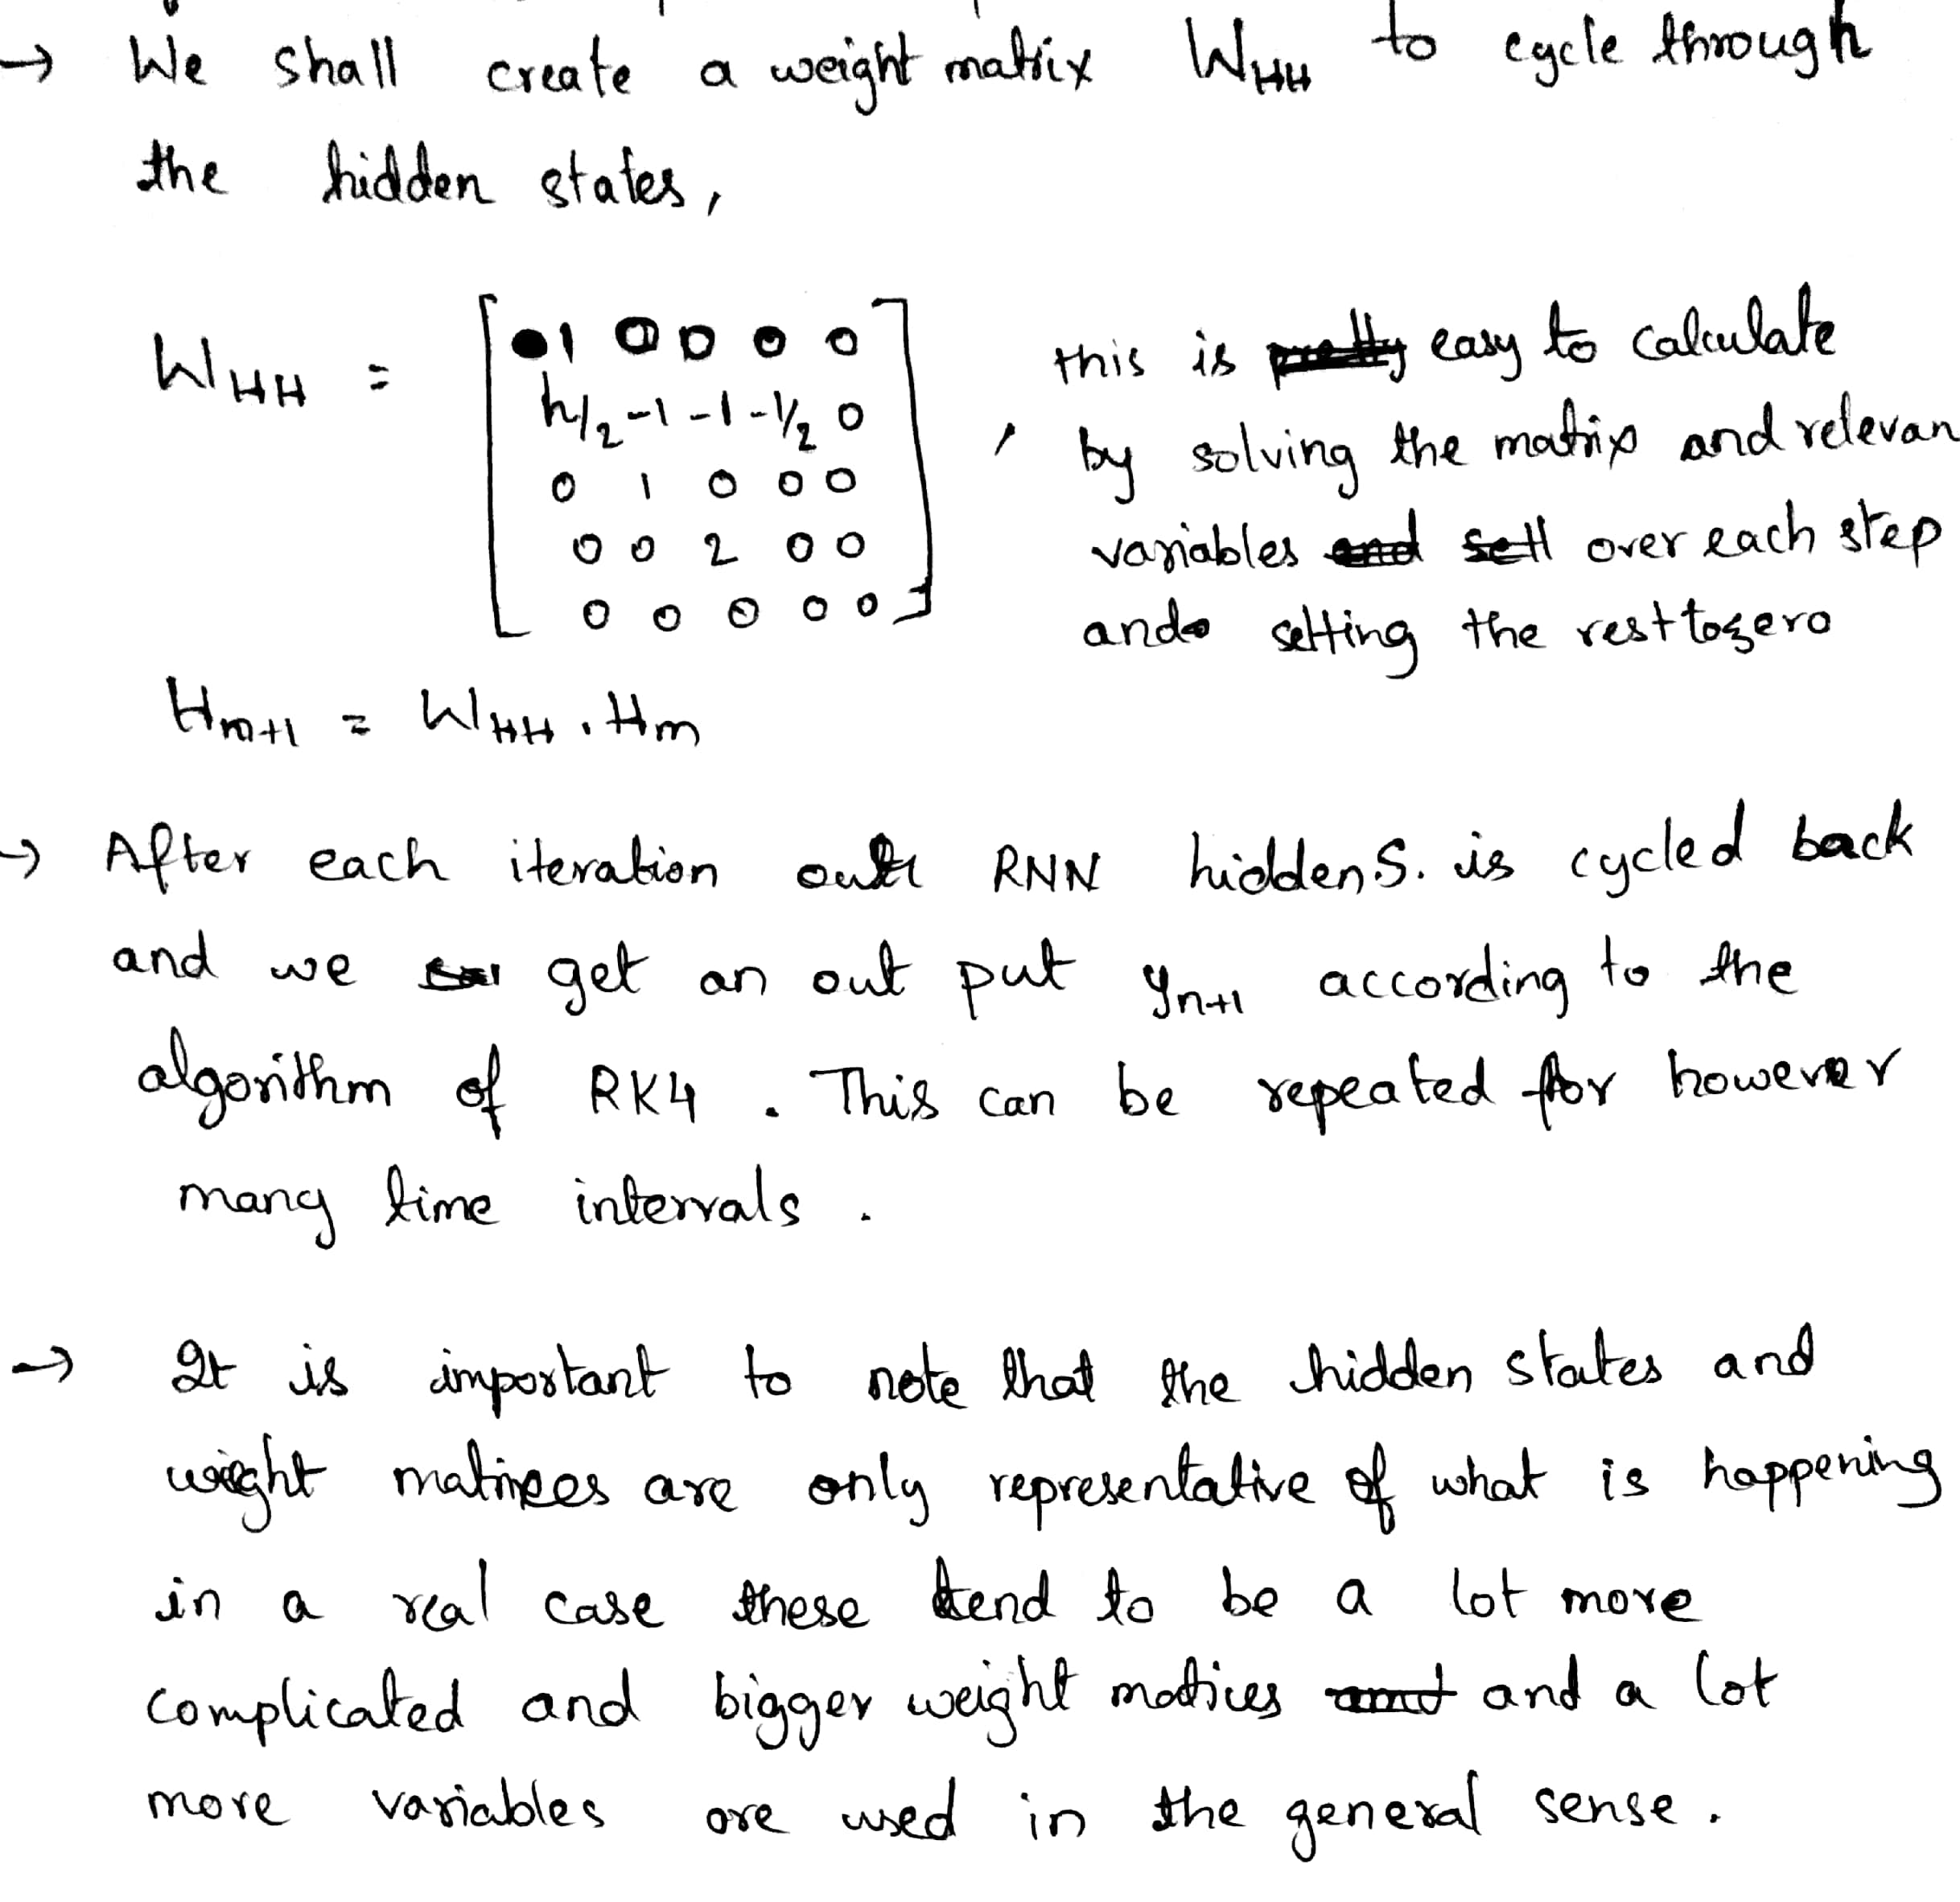 → We shall create a weight matrix W_HH to cycle through
the hidden states,
W_HH = [ 1 0 0 0 0
h/2 -1 -1 -1/2 0
0 1 0 0 0
0 0 2 0 0
0 0 0 0 0 ]
, this is easy to calculate
by solving the matrix and relevan
variables over each step
and setting the rest to zero
H_m+1 = W_HH . H_m
→ After each iteration our RNN hidden.S. is cycled back
and we get an out put y_n+1 according to the
algorithm of RK4 . This can be repeated for however
many time intervals .
→ It is important to note that the hidden states and
weight matrices are only representative of what is happening
in a real case these tend to be a lot more
complicated and bigger weight matices and a lot
more variables are used in the general sense .